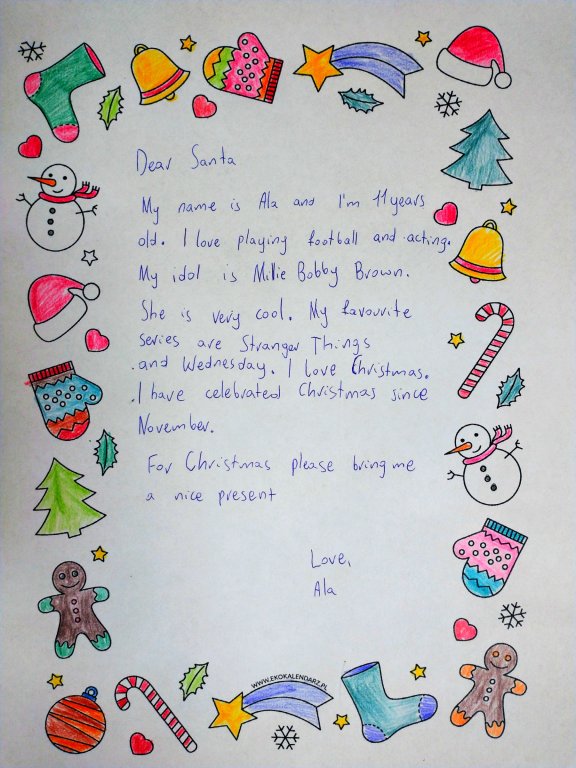 Dear Santa
My name is Ala and I'm 11 years
old. I love playing football and acting.
My idol is Millie Bobby Brown.
She is very cool. My favourite
series are Stranger Things
and Wednesday. I love Christmas.
I have celebrated Christmas since
November.
For Christmas please bring me
a nice present
Love,
Ala
WWW.EKOKALENDARZ.PL